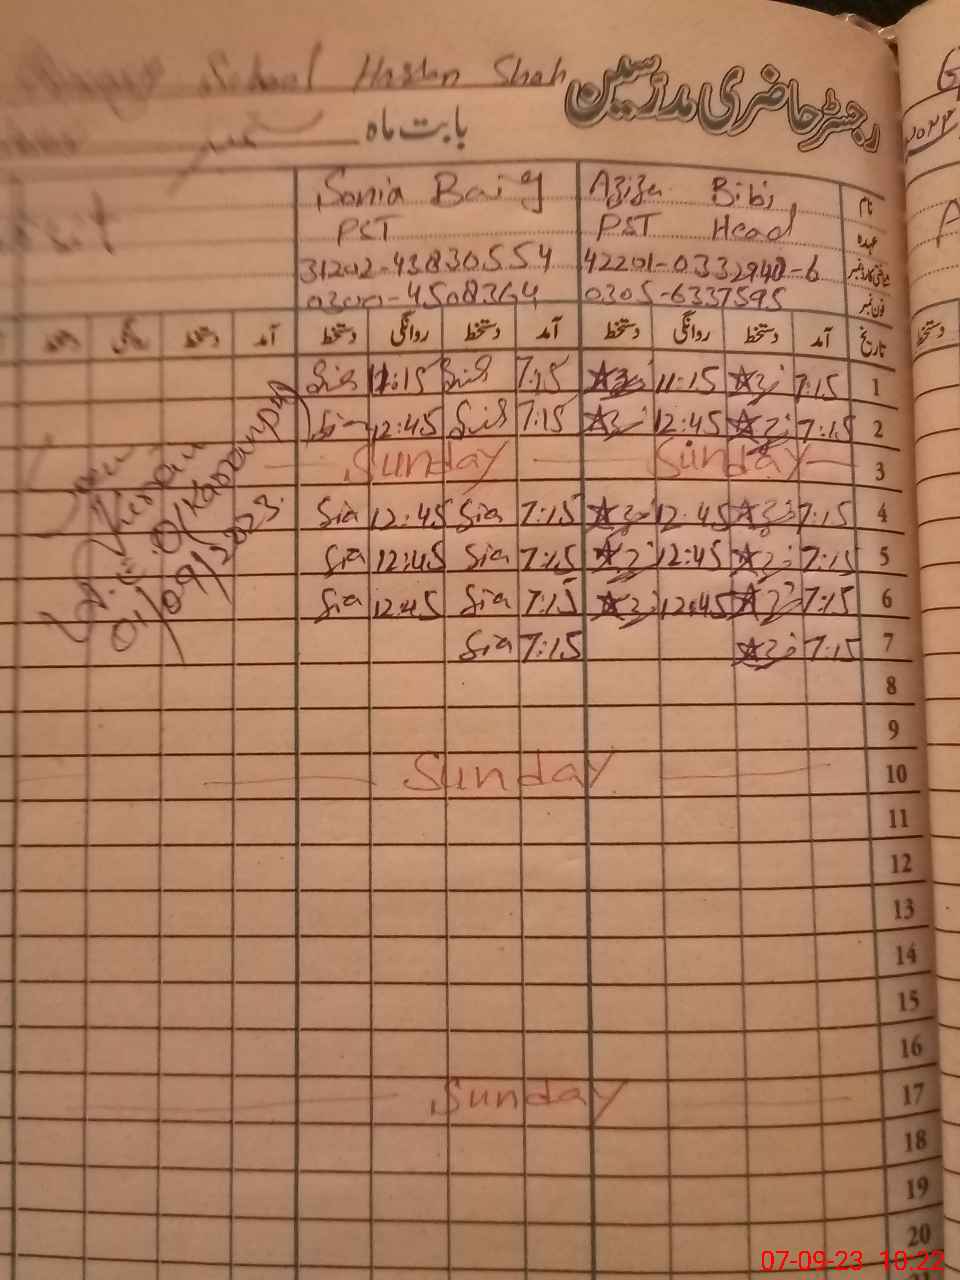 School Hasan Shah
رجسٹر حاضری مدرسین
بابت ماہ ستمبر
نام Aziza Bibi Sonia Baig
عہدہ PST Head PST
42201-0332940-6 31202-4383055-4
فون نمبر 0305-6337595 0300-4508364
تاریخ آمد دستخط روانگی دستخط آمد دستخط روانگی دستخط آمد دستخط
1 7:15 11:15 7:15 11:15
2 7:15 12:45 7:15 12:45
3 Sunday Sunday
4 7:15 12:45 7:15 Sia 12:45 Sia
5 7:15 12:45 7:15 Sia 12:45 Sia
6 7:15 12:45 7:15 Sia 12:45 Sia
7 7:15 7:15 Sia
8
9
10 Sunday
11
12
13
14
15
16
17 Sunday
18
19
20
01/09/2023
دستخط
07-09-23 10:22